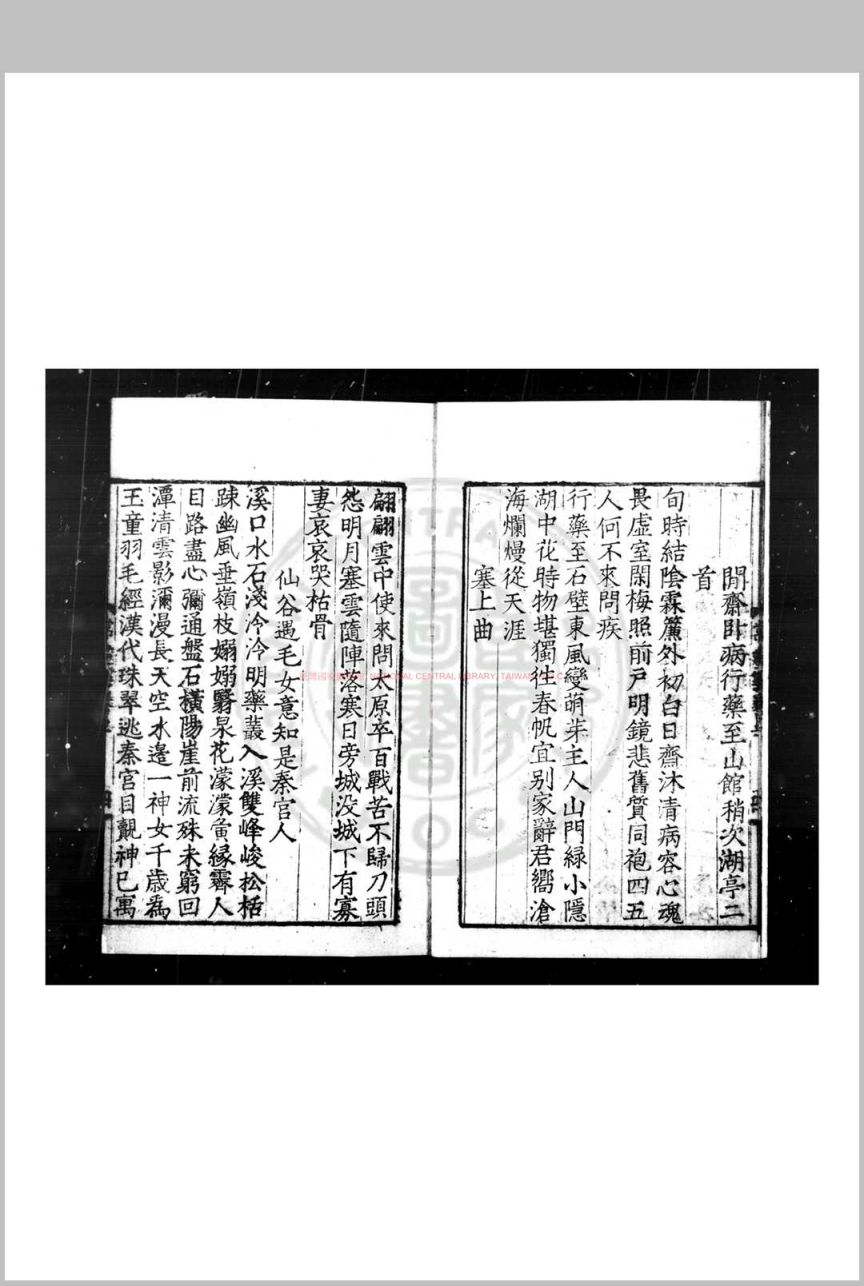 閒齋卧病行藥至山館稍次湖亭二
首
旬時結陰霖簾外初白日齋沐清病容心魂
畏虚室閑梅照前戸明鏡悲舊質同袍四五
人何不來問疾
行藥至石壁東風變萌芽主人山門緑小隱
湖中花時物堪獨往春帆宜别家辭君嚮滄
海爛熳從天涯
塞上曲
翩翩雲中使來問太原卒百戰苦不歸刀頭
怨明月塞雲隨陣落寒日旁城没城下有寡
妻哀哀哭枯骨
仙谷遇毛女意知是秦宫人
溪口水石淺泠泠明藥叢入溪雙峰峻松栝
踈幽風垂嶺枝嫋嫋翳泉花濛濛夤縁霽人
目路盡心彌通盤石横陽崖前流殊未窮回
潭清雲影瀰漫長天空水邊一神女千歳爲
玉童羽毛經漢代珠翠逃秦宫目覿神已寓
臺灣國家圖書館 NATIONAL CENTRAL LIBRARY, TAIWAN (R.O.C.)